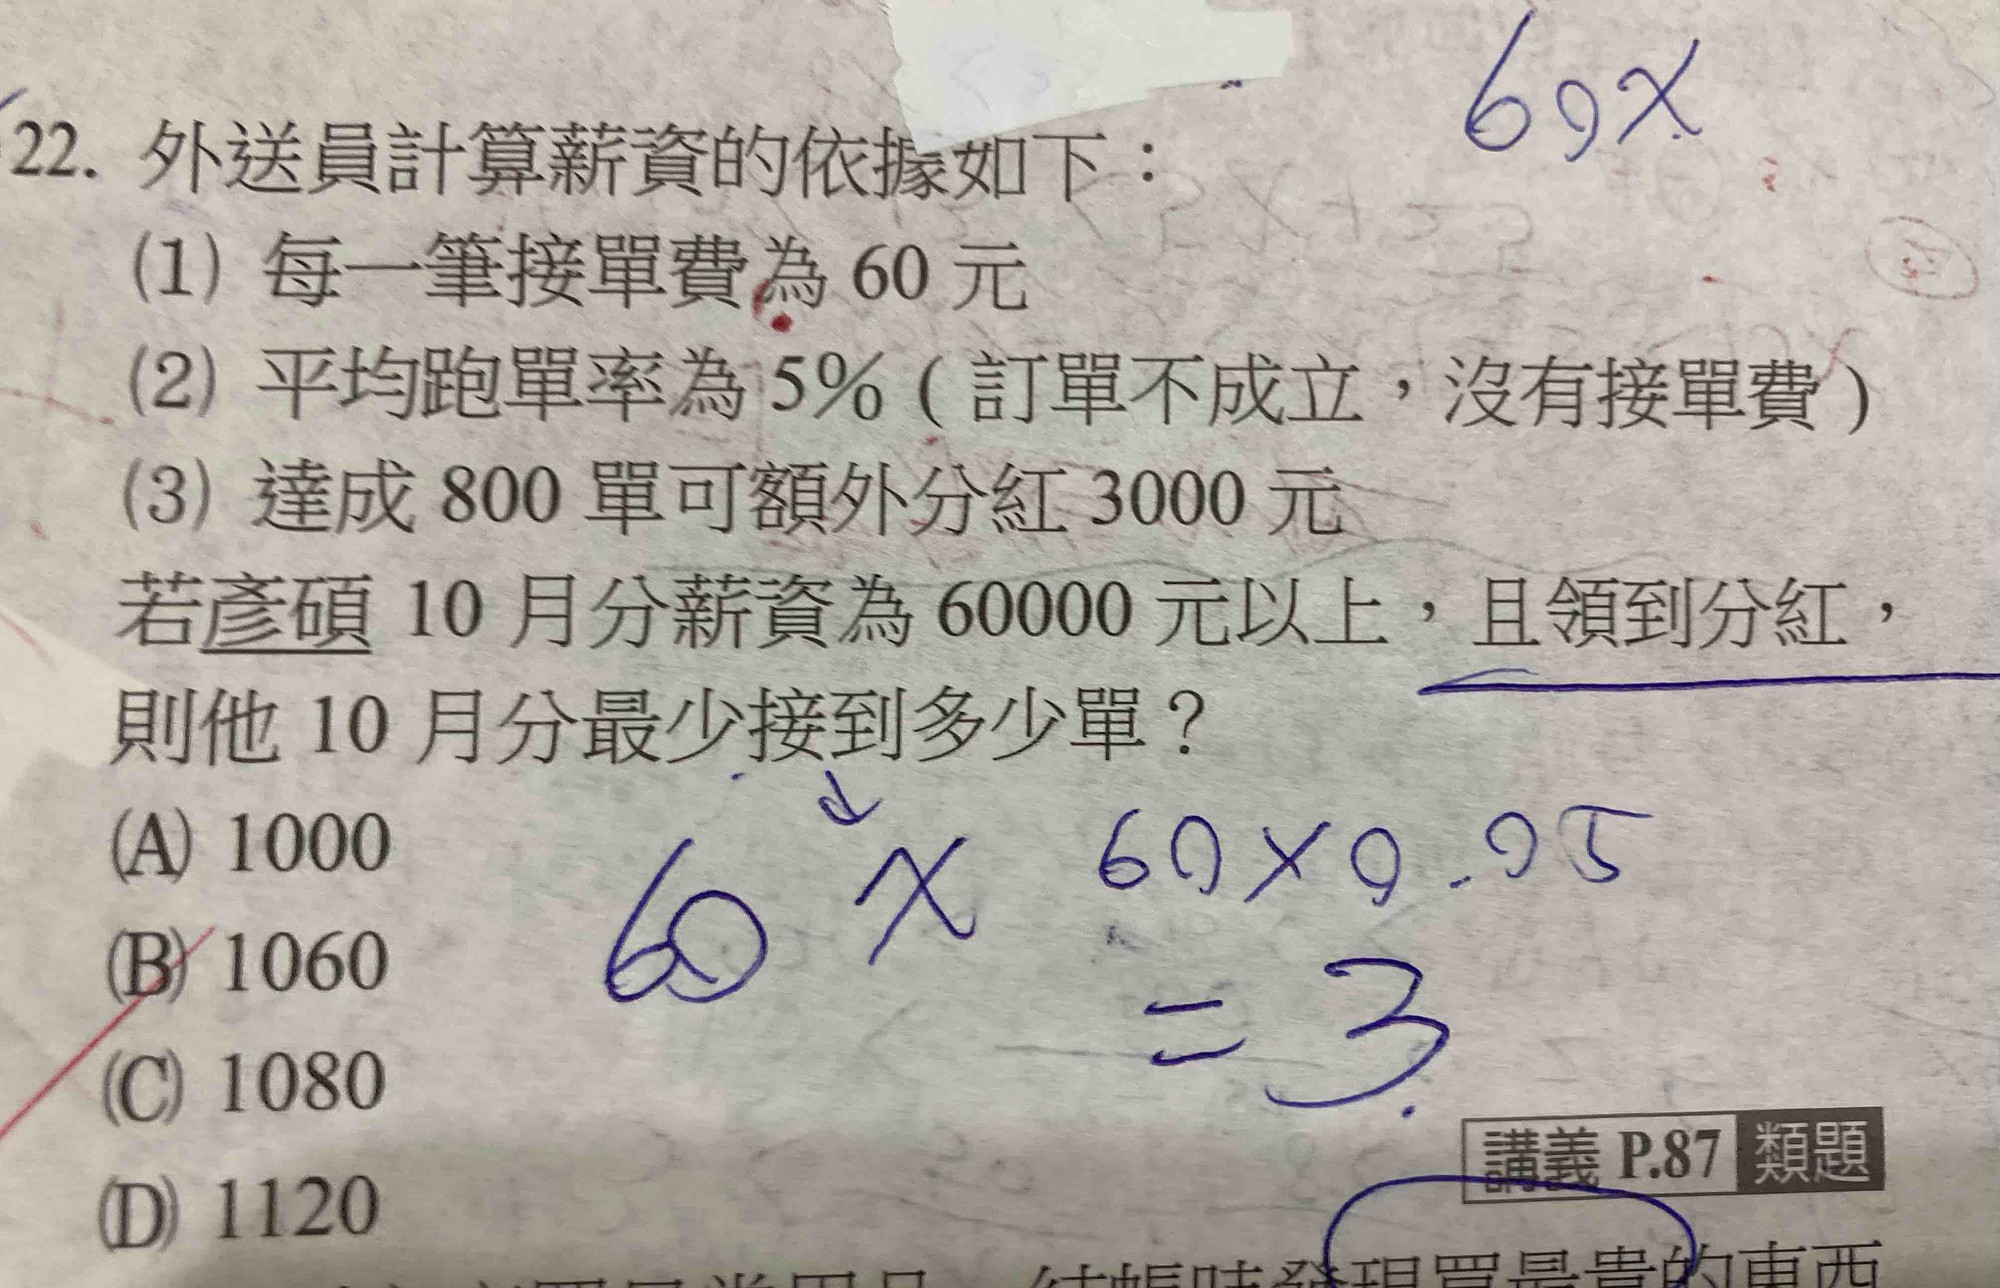 60x
22. 外送員計算薪資的依據如下：
(1) 每一筆接單費為 60 元
(2) 平均跑單率為 5% ( 訂單不成立，沒有接單費 )
(3) 達成 800 單可額外分紅 3000 元
若彥碩 10 月分薪資為 60000 元以上，且領到分紅，
則他 10 月分最少接到多少單？
(A) 1000
60 x
60×0.05
(B) 1060
= 3
(C) 1080
講義 P.87 類題
(D) 1120
結帳時發現買最貴的東西